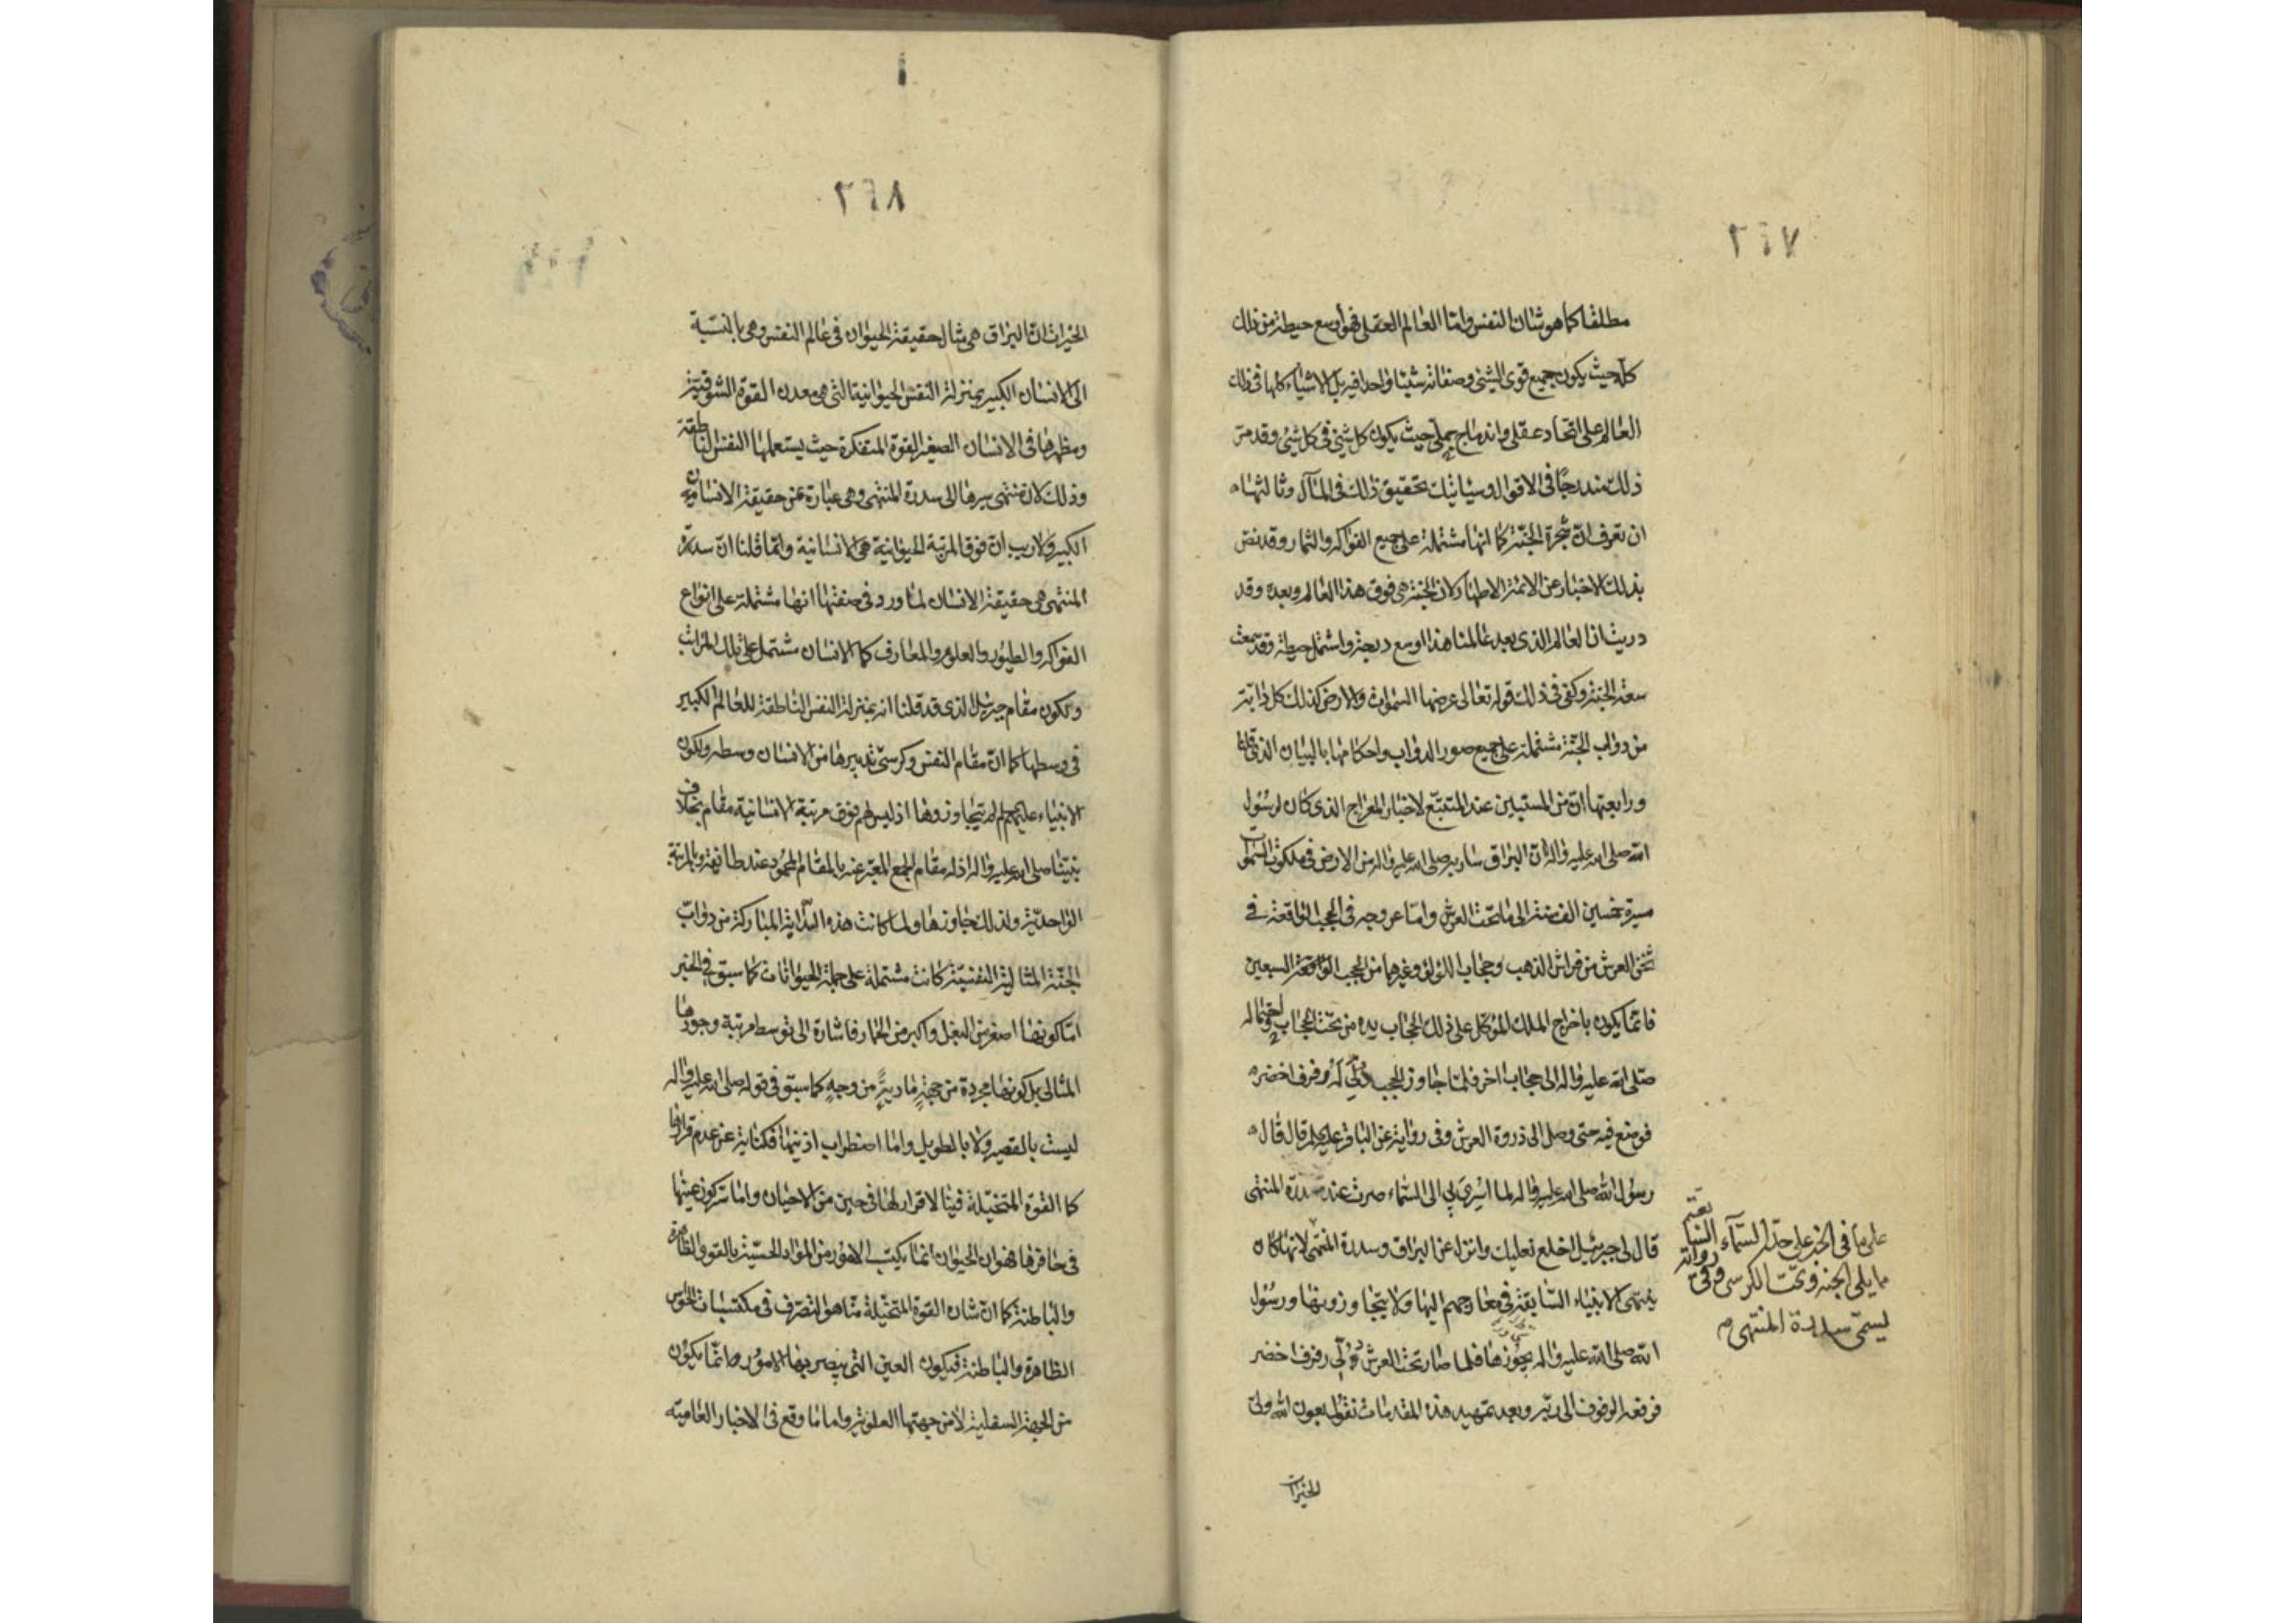 ٢٤٧
مطلقا كما هو شان النفس واما العالم العقلى فهو أوسع حيطة من ذلك
كله حيث يكون جميع قوى الشئ وصفاته شيئا واحدا فيه بل الاشياء كلها فى ذلك
العالم على اتحاد عقلى واندماج جملى حيث يكون كل شئ فى كل شئ وقد مر
ذلك مندرجًا فى الاقوال وسيأتيك تحقيق ذلك فى المآل وثالثها
ان تعرف انّ شجرة الجنّة كما انها مشتملة على جميع الفواكه والثمار وقد نص
بذلك الاخبار عن الائمة الاطهار لان الجنة هى فوق هذا العالم وبعده وقد
دريت ان العالم الذى بعد عالمنا هذا اوسع درجة واشتمل حيطة وقد سمعت
سعة الجنة وكفى فى ذلك قوله تعالى عرضها السموات والارض كذلك كل دابّة
من دواب الجنّة مشتملة على جميع صور الدواب واحكامها بالبيان الذى قلنا
ورابعتها انّ من المستبين عند المتتبّع لاخبار المعراج الذى كان لرسول
الله صلى الله عليه واله انّ البراق سار به صلى الله عليه واله من الارض فى ملكوت السموات
مسيرة خمسين الف سنة الى ما تحت العرش واما عروجه فى الحجب الواقعة فى
ثخن العرش من فراش الذهب وحجاب اللؤلؤ وغيرهما من الحجب الواقعة السبعين
فانما يكون باخراج الملك الموكّل على ذلك الحجاب يده من تحت الحجاب واحتماله
صلّى الله عليه واله الى حجاب اخر فلمّا جاوز الحجب دُلّى له رفرف اخضر
فوضع فيه حتى وصل الى ذروة العرش وفى رواية عن الباقر عليه السلم قال قال
رسول الله صلى الله عليه واله لما اسرى بى الى السّماء صرت عند سدرة المنتهى
قال لى جبرئيل اخلع نعليك وانزل عن البراق وسدرة المنتهى لانها كان
ينتهى الانبياء السّابقة فى معارجهم اليها ولا يتجاوزونها ورسول
الله صلى الله عليه واله يجوزها فلما صار تحت العرش دُلّى رفرف اخضر
فرفعه الرفرف الى ربّه وبعد تمهيد هذه المقدمات نقول بعون الله ولىّ
الخيرات
على ما فى الخبر على حدّ السّماء السّابعة
مما يلى الجنة وتحت الكرسى وفى رواية
ليسمّى سدرة المنتهى م
٢٤٨
الخيرات انّ البراق هى مثال حقيقة الحيوان فى عالم النفس وهى بالنسبة
الى الانسان الكبير بمنزلة النفس الحيوانية التى هى معدن القوة الشوقيّة
ومظهرها فى الانسان الصغير القوة المتفكرة حيث يستعملها النفس الناطقة
وذلك لان منتهى سيرها الى سدرة المنتهى وهى عبارة عن حقيقة الانسانية
الكبير ولا ريب ان فوق المرتبة الحيوانية هى الانسانية وانما قلنا انّ سدرة
المنتهى هى حقيقة الانسان لما ورد فى صفتها انها مشتملة على انواع
الفواكه والطيور والعلوم والمعارف كما الانسان مشتمل على تلك المراتب
ولكون مقام جبرئيل الذى قد قلنا انه بمنزلة النفس الناطقة للعالم الكبير
فى وسطها كما انّ مقام النفس وكرسىّ تدبيرها من الانسان وسطه ولكون
الانبياء عليهم لم يتجاوزوها اذ ليس لهم فوق مرتبة الانسانية مقام بخلاف
نبيّنا صلى الله عليه واله اذ له مقام الجمع المعبّر عنه بالمقام المحمود عند طائفة وبالمرتبة
الواحديّة ولذلك جاوزها ولما كانت هذه الدّابة المباركة من دوابّ
الجنّة المثالية النفسيّة كانت مشتملة على جملة الحيوانات كما سبق فى الخبر
امّا كونها اصغر من البغل واكبر من الحمار فاشارة الى توسط مرتبة وجودها
المثالى بل كونها مجردة من جهةٍ ماديةٍ من وجهٍ كما سبق فى قوله صلى الله عليه واله
ليست بالقصير ولا بالطويل واما اضطراب اذنيها فكناية عن عدم قرارها
كما القوة المتخيّلة فينا لا قرار لها فى حين من الاحيان واما كون عينها
فى حافرها فهو ان الحيوان انما يكتسب الامور من المواد الحسّية بالقوى الظاهرة
والباطنة كما انّ شان القوة المتخيّلة منّا هو التصرّف فى مكتسبات الحواس
الظاهرة والباطنة فيكون العين التى يبصر بها الامور وانمّا يكون
من الجهة السفلية لا من جهتها العلوية واما ما وقع فى الاخبار العامية